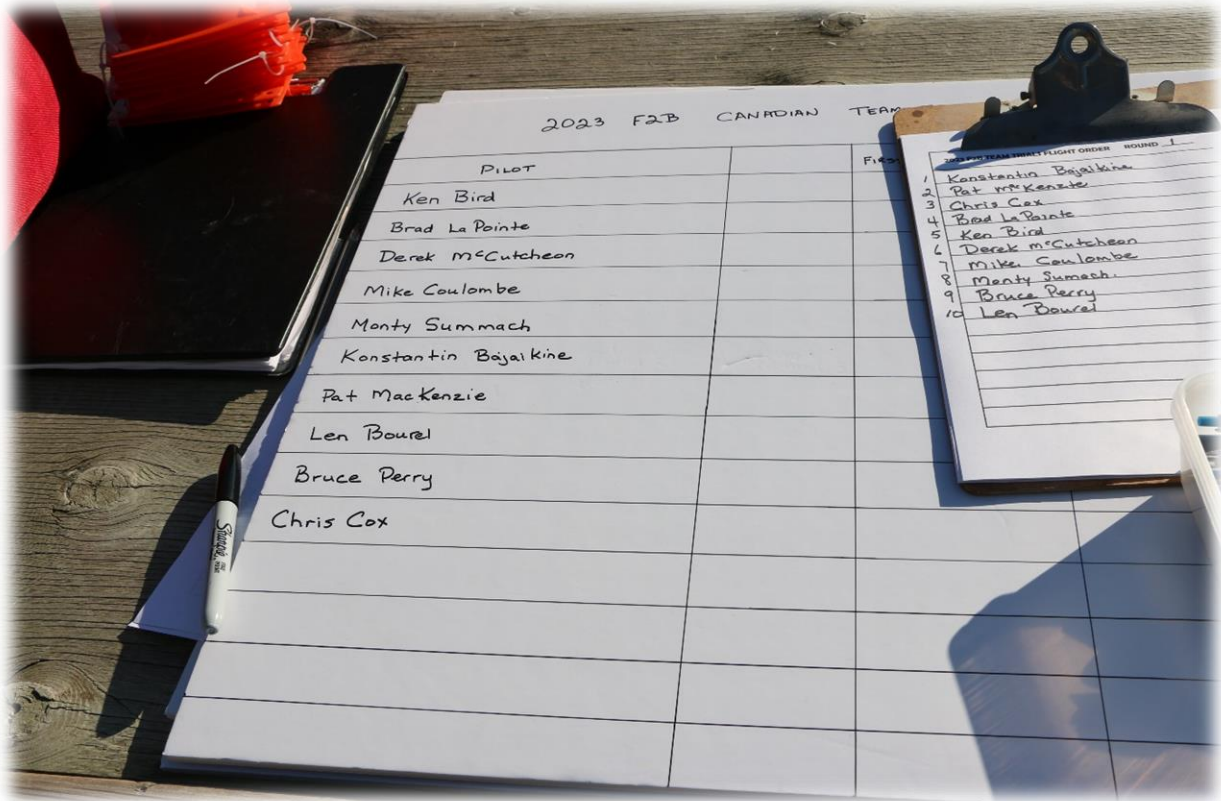 2023 F2B CANADIAN TEAM
PILOT
FIRS
Ken Bird
Brad LaPointe
Derek McCutcheon
Mike Coulombe
Monty Summach
Konstantin Bajaikine
Pat MacKenzie
Len Bourel
Bruce Perry
Chris Cox
2023 F2B TEAM TRIALS FLIGHT ORDER ROUND 1
1 Konstantin Bajaikine
2 Pat McKenzie
3 Chris Cox
4 Brad LaPointe
5 Ken Bird
6 Derek McCutcheon
7 Mike Coulombe
8 Monty Sumach.
9 Bruce Perry
10 Len Bourel
Sharpie